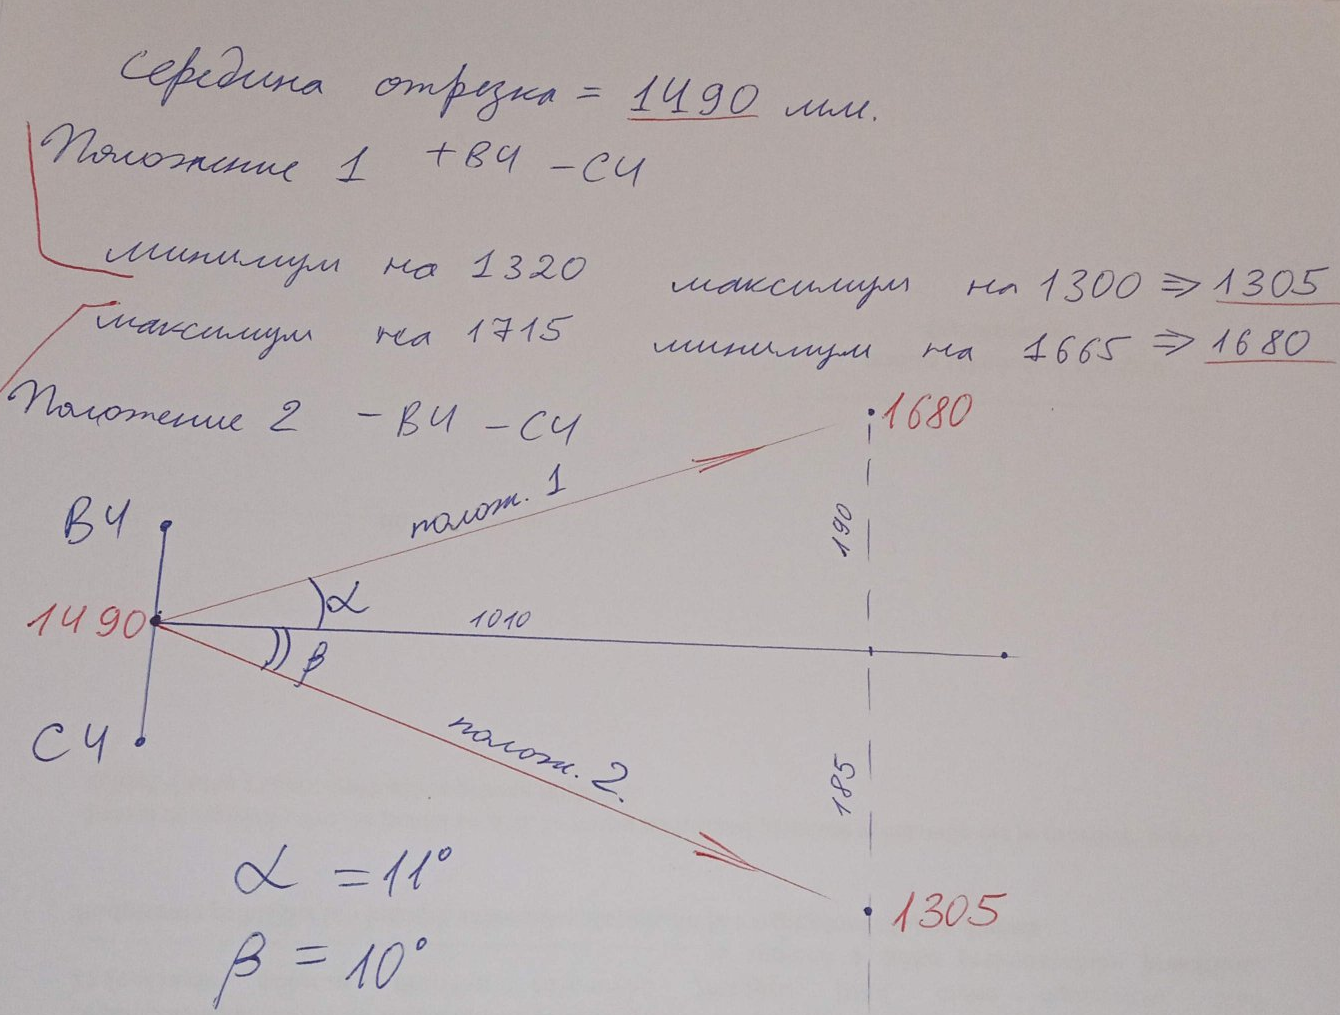 середина отрезка = 1490 мм.
Положение 1 +ВЧ -СЧ
минимум на 1320 максимум на 1300 ⇒ 1305
максимум на 1715 минимум на 1665 ⇒ 1680
Положение 2 -ВЧ -СЧ
1680
полож. 1
ВЧ
190
1490
α
1010
β
СЧ
полож. 2.
185
α = 11°
1305
β = 10°